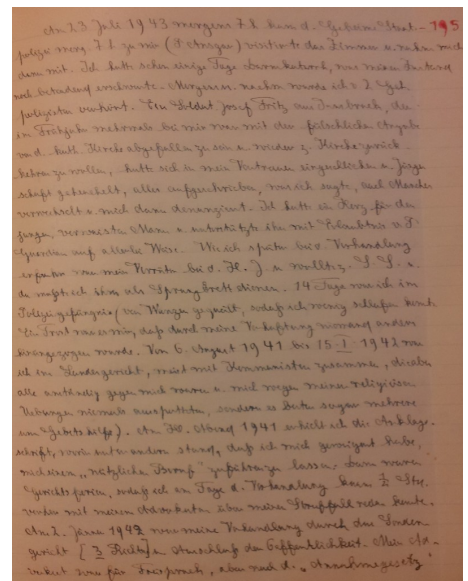 Am 23 Juli 1943 morgens 7 h kam d. Geheime Staats- 195
polizei morg. 7 h zu mir (P. Ansgar) visitierte das Zimmer u. nahm mich
dann mit. Ich hatte schon einige Tage Darmkatarrh, was meinen Zustand
noch bedeutend erschwerte. Morgens u. nachm. wurde ich v. 2 Geh.
polizisten verhört. Ein Soldat Josef Fritz aus Innsbruck, der
im Frühjahr mehrmals bei mir war mit der fälschlichen Angabe
von d. kath. Kirche abgefallen zu sein u. wieder z. Kirche zurück-
kehren zu wollen, hatte sich in mein Vertrauen eingeschlichen u.
schaft geheuchelt, alles aufgeschrieben, was ich sagte, auch Manches
verwechselt u. mich dann denunziert. Ich hatte ein Herz für den
jungen, verwaisten Mann u. unterstützte ihn mit Erlaubnis v. P.
Guardian auf allerlei Weise. Wie ich später bei d. Verhandlung
erfuhr war mein bei d. H. J. u. wollte z. S. S. u.
da mußte ich ihm als Sprungbrett dienen. 14 Tage war ich im
Polizeigefängnis (von Wanzen gequält, sodaß ich wenig schlafen konnte
Ein Trost war es mir, daß durch meine Verhaftung niemand anders
hineingezogen wurde. Von 6. August 1941 bis 15. I. 1942 war
ich im Landesgericht, meist mit Kommunisten zusammen, die aber
alle anständig gegen mich waren u. mich wegen meinen religiösen
Uebungen niemals ausspotteten, sondern es baten sogar mehrere
um "Gebetshilfe). Am Hl. Abend 1941 erhielt ich die Anklage-
schrift, worin unter andern stand, daß ich mich geweigert habe,
mich einem "nützlichen Beruf" zuführen zu lassen. Dann waren
Gerichtsferien, sodaß ich am Tage d. Verhandlung kaum 1/2 Std.
vorher mit meinem Advokaten über meine Straffall reden konnte.
Am 2. Jänner 1942 war meine Verhandlung durch das Sonder-
gericht [3 Richter] u. Ausschluß der Oeffentlichkeit. Mein Ad-
vokat war für Freispruch, aber nach d. "Annahmegesetz"